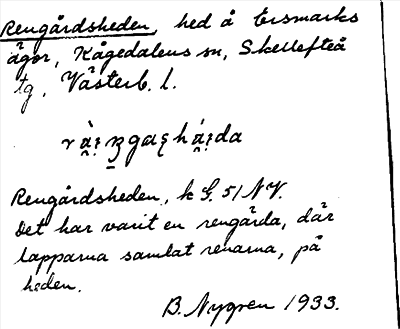 Rengårdsheden, hed å Ersmarks
ägor, Kågedalens sn, Skellefteå
tg, Västerb. l.
Rengårdsheden, k G. 51 NV.
Det har varit en rengärda, där
lapparna samlat renarna, på
heden.
B. Nygren 1933.